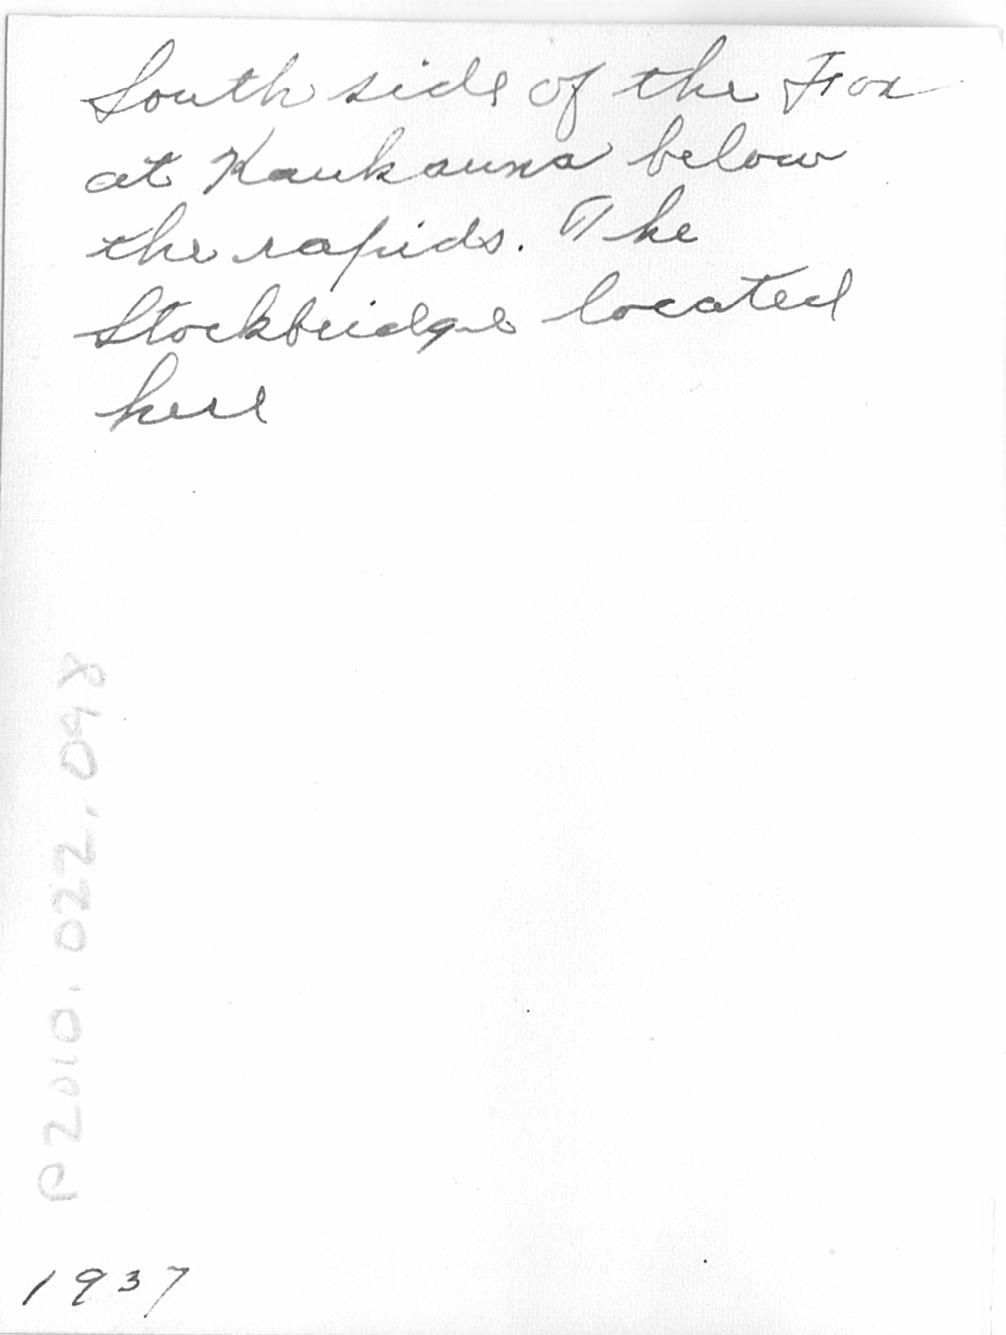 South side of the Fox
at Kaukauna below
the rapids. The
Stockbridge located
here
P2010.022.098
1937